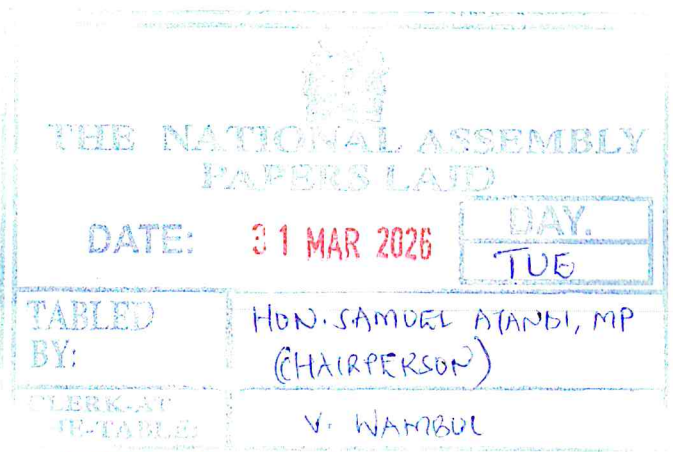 THE NATIONAL ASSEMBLY
PAPERS LAID
DATE: 31 MAR 2026
DAY.
TUE
TABLED BY:
HON. SAMUEL ATANDI, MP
(CHAIRPERSON)
CLERK-AT
THE-TABLE:
V. WAMBUI